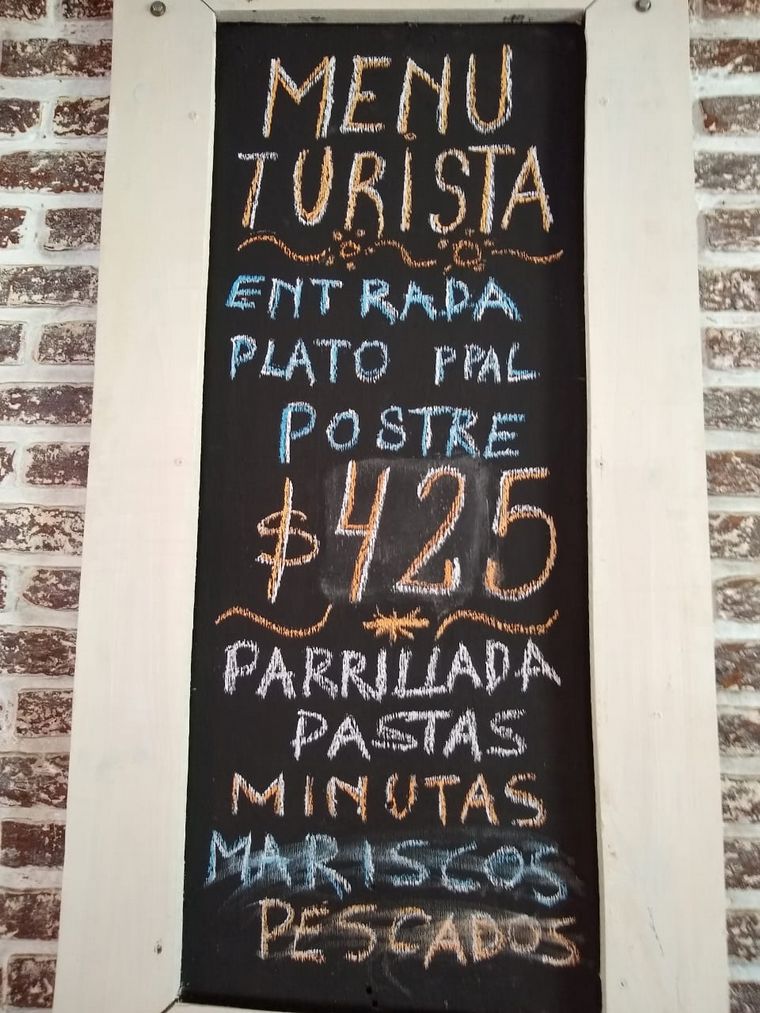 MENU
TURiSTA
ENTRADA
PLATO PPAL
POSTRE
$425
PARRILLADA
PASTAS
MINUTAS
MARISCOS
PESCADOS